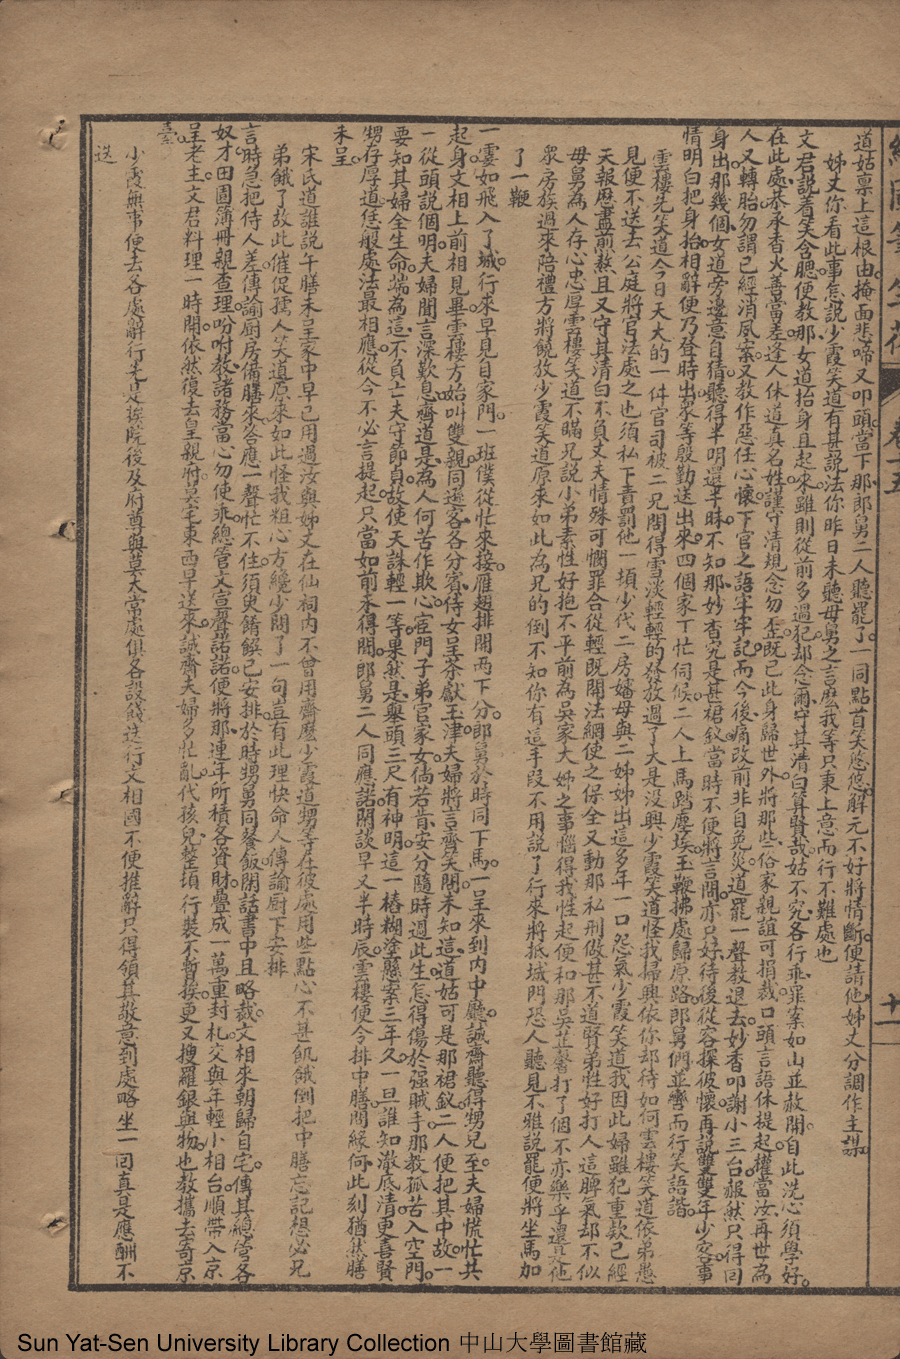 繪圖筆生花 卷十五 十一
道姑稟上這根由掩面悲啼又叩頭當下那郎舅二人聽罷了一同點首笑悠悠解元不好將情斷便請他姊丈分調作主謀
姊丈你看此事怎說少霞笑道有甚說法你昨日未聽母舅之言麼我等只秉上意而行不難處也
文君說着笑含腮便教那女道抬身且起來雖則從前多過犯却念爾守其清白算賢哉姑不究各行乖罪案如山並赦開自此洗心須學好
在此處恭承香火善當差逢人休道真名姓謹守清規念勿歪既已此身歸世外將那些俗家親誼可捐裁口頭言語休提起權當汝再世為
人又轉胎勿謂已經消風案又教作惡任心懷下官之語牢牢記而今後痛改前非自免災道罷一聲教退去妙香叩謝小三台報然只得回
身出那幾個女道旁邊意自猜聽得半明還半昧不知那妙香究是甚裙釵當時不便將言問亦只好待後從容探彼懷再說雙雙年少客事
情明白把身抬相辭便乃登時出衆等殷勤送出來四個家丁忙伺候二人上馬踏塵埃玉鞭拂處歸原路郎舅們並轡而行笑語諧
雲樓先笑道今日天大的一件官司被二兄問得雪淡輕輕的發放過了大是沒興少霞笑道怪我掃興依你却待如何雲樓笑道依弟愚
見便不送去公庭將官法處之也須私下責罰他一頓少代二房嬸母與二姊姊出這多年一口怨氣少霞笑道我因此婦雖犯重款已經
天報歷盡煎熬且又守其清白不負丈夫情殊可憫罪合從輕既開法網使之保全又動那私刑做甚不道賢弟性好打人這脾氣却不似
母舅為人存心忠厚雲樓笑道不瞞兄說小弟素性好抱不平前為吳家大姊之事惱得我性起便和那吳芷馨打了個不亦樂乎還是他
衆房族過來陪禮方將饒放少霞笑道原來如此為兄的倒不知你有這手段不用說了行來將抵城門恐人聽見不雅說罷便將坐馬加
了一鞭
一霎如飛入了城行來早見自家門一班僕從忙來接雁翅排開兩下分郎舅於時同下馬一呈來到內中廳誠齋聽得甥兒至夫婦慌忙共
起身文相上前相見畢雲樓方始叫雙親同遜客各分賓侍女呈茶獻玉津夫婦將言齊笑問未知這道姑可是那裙釵二人便把其中故一
一從頭說個明夫婦聞言深歎息齊道是為人何苦作欺心宦門子弟官家女倘若肯安分隨時過此生怎得傷於强賊手那教孤苦入空門
要知其婦全生命端為這不負亡夫守節貞故使天誅輕一等果然是舉頭三尺有神明這一樁糊塗懸案三年久一旦誰知澈底清更喜賢
甥存厚道恁般處法最相應從今不必言提起只當如前未得聞郎舅二人同應諾閒談早又半時辰雲樓便令排中膳問緣何此刻猶然膳
未呈
宋氏道誰說午膳未呈家中早已用過汝與姊丈在仙祠內不曾用齋麼少霞道甥等在彼處用些點心不甚飢餓倒把中膳忘記想必兄
弟餓了故此催促孺人笑道原來如此怪我粗心方纔少問了一句豈有此理快命人傳諭厨下安排
言時急把侍人差傳諭厨房備膳來答應一聲忙不住須臾餚饌已安排於時甥舅同餐飯閒話書中且略裁文相來朝歸自宅傳其總管各
奴才田園簿冊親查理吩咐教諸務當心勿使乖總管文宣聲諾諾便將那連年所積各資財疊成一萬重封札交與年輕小相台順帶入京
呈老主文君料理一時開依然復去皇親府莫宅東西早送來誠齋夫婦多忙亂代孩兒整頓行裝不暫挨更又搜羅銀與物也教攜去寄京
臺
少霞無事便去各處辭行先是撫院後及府尊與莫太常處俱各設餞送行文相國不便推辭只得領其敬意到處略坐一回真是應酬不
迭
Sun Yat-Sen University Library Collection 中山大學圖書館藏